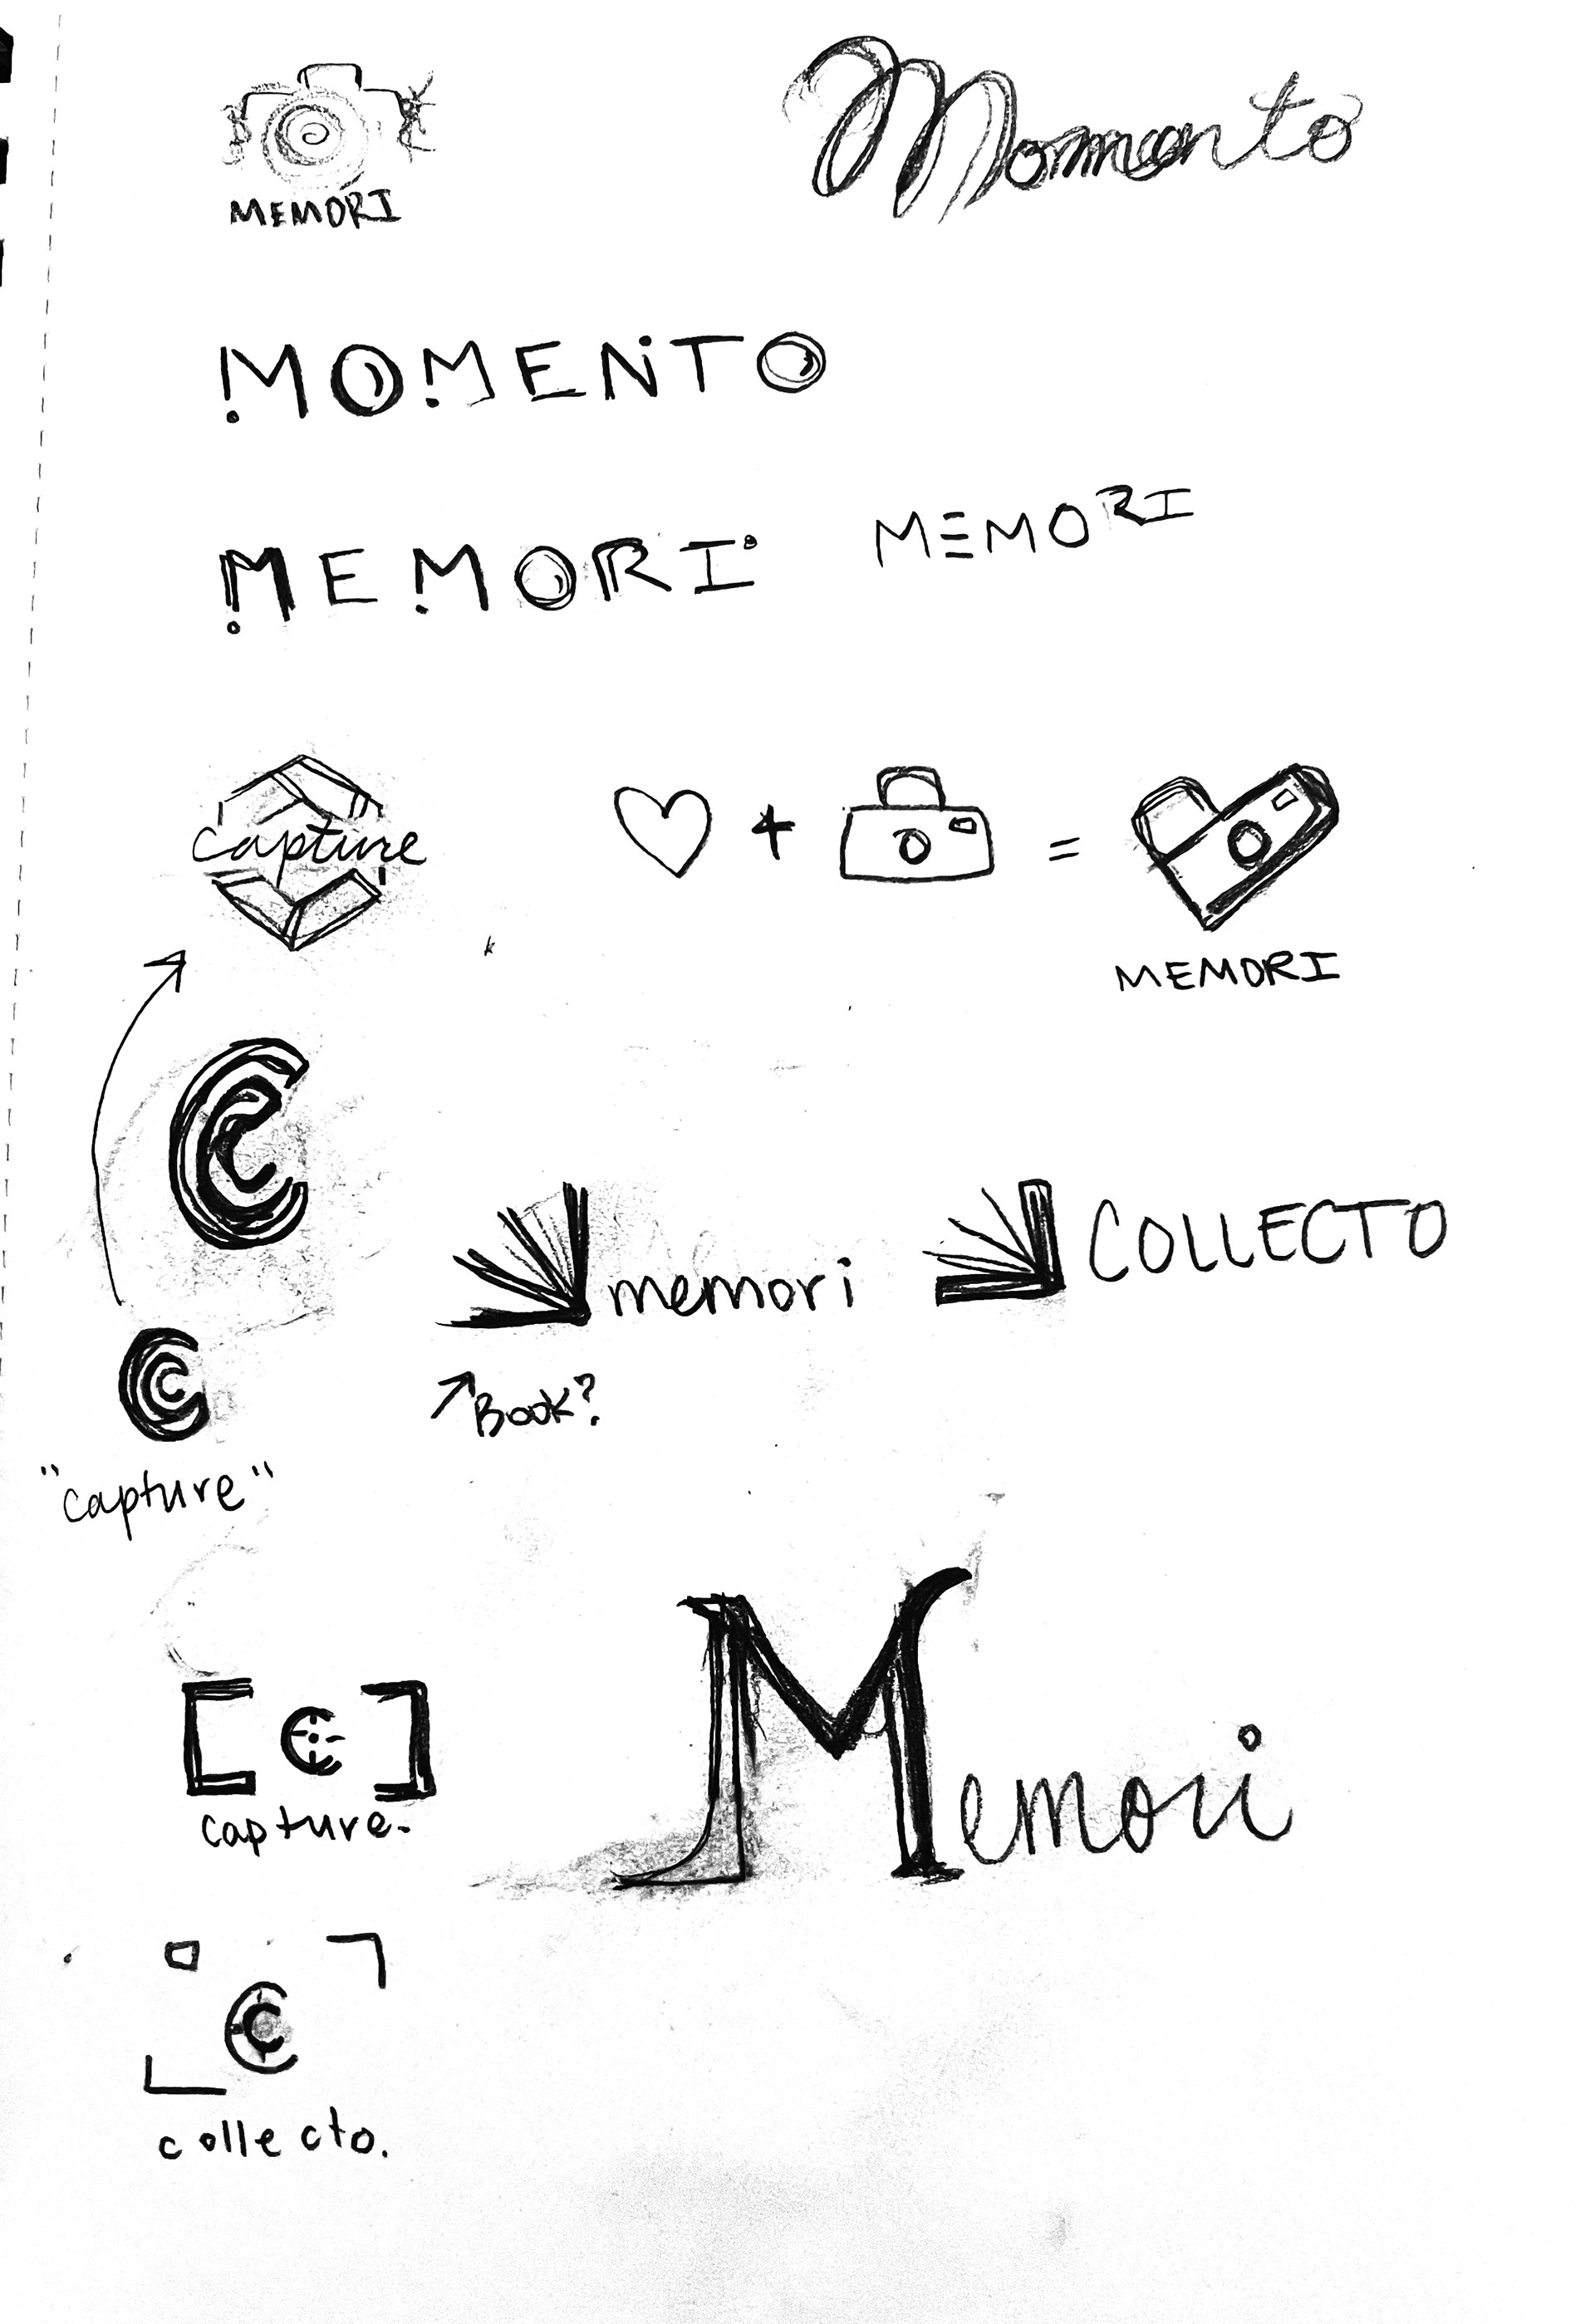 MEMORI
Momento
MOMENTO
MEMORI
MEMORI
capture
+ =
MEMORI
C
memori
COLLECTO
C
Book?
"capture"
[C]
capture.
Memori
C
collecto.